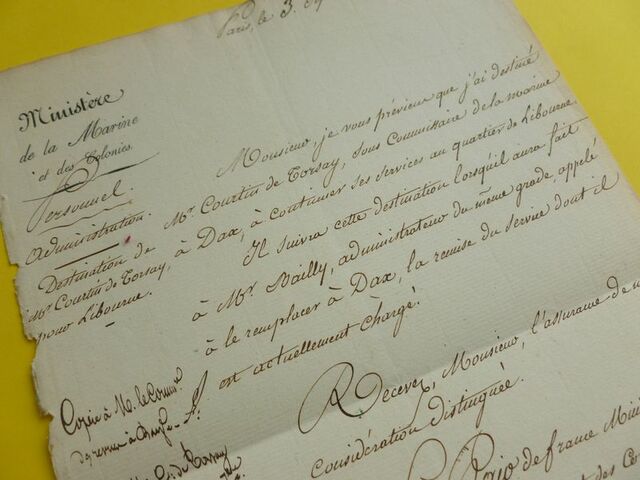 Paris, le 3.
Ministère
de la Marine
et des Colonies.
Personnel.
Administration.
Destination de
Mr. Courtin de Torsay,
pour Libourne.
Monsieur, je vous préviens que j'ai destiné
Mr. Courtin de Torsay, sous Commissaire de la marine
à Dax, à continuer ses services au quartier de Libourne
Il suivra cette destination lorsqu'il aura fait
à Mr. Bailly, administrateur du même grade, appelé
à le remplacer à Dax, la remise du service dont il
est actuellement chargé.
Recevez, Monsieur, l'assurance de
considération distinguée.
Copie à M. le
de Torsay
de france